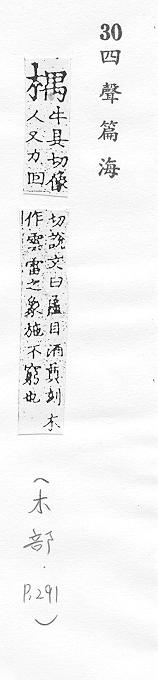 30 四聲篇海
牛具切像
人又力回
切說文曰目酒刻木
作雲雷之象施不窮也
(木部.P.291)